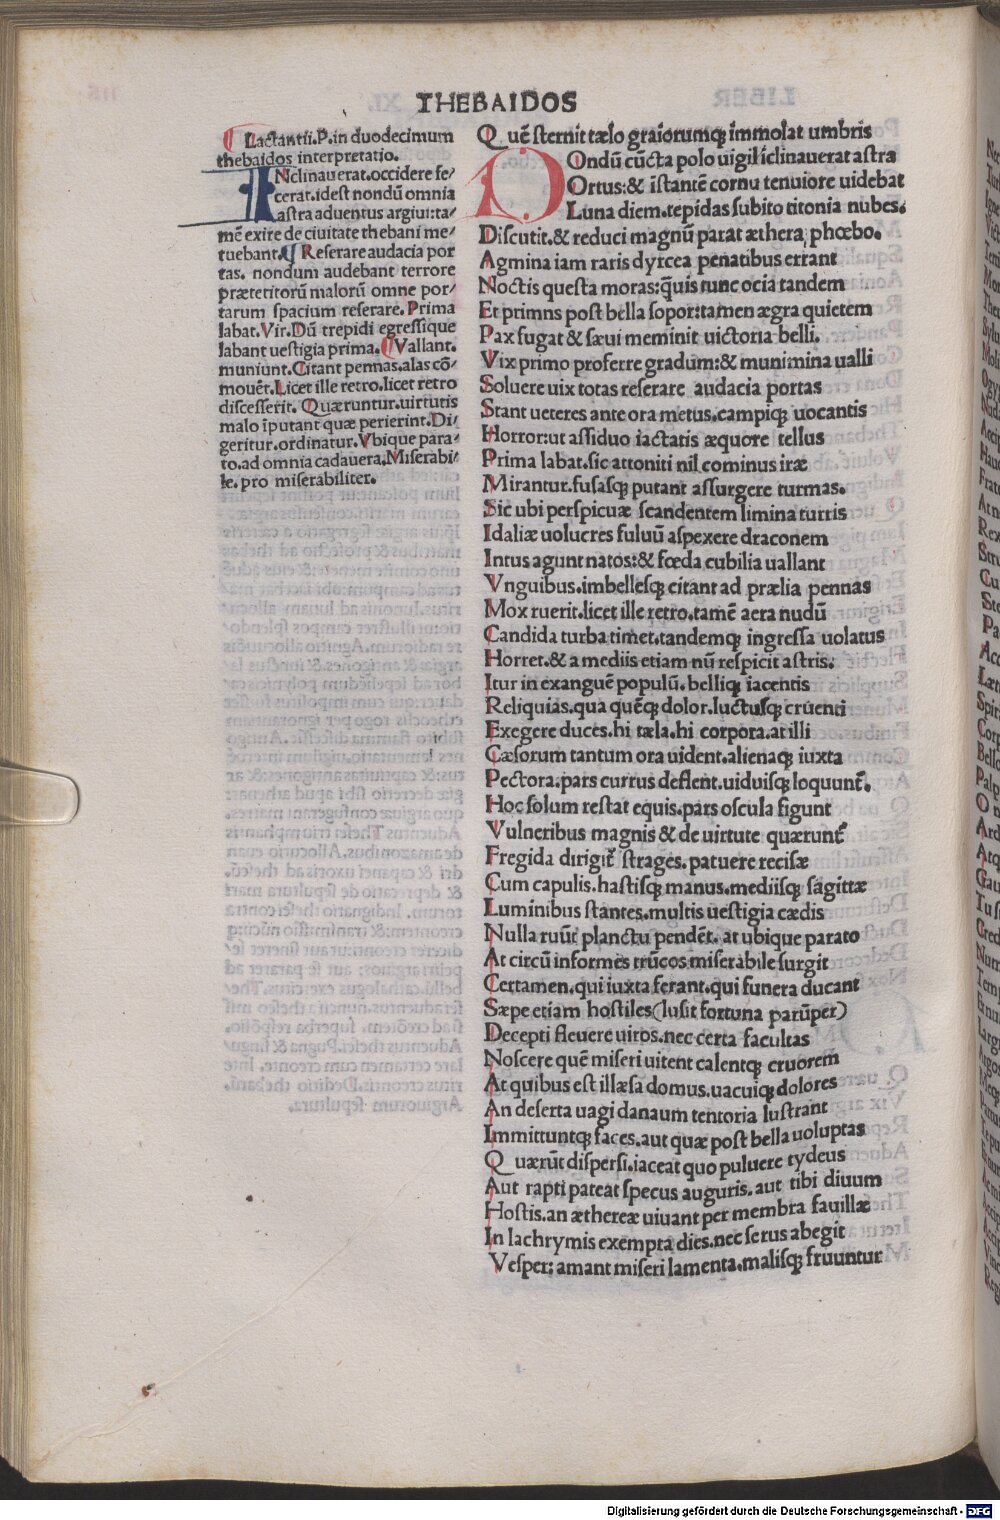 THEBAIDOS
Lactantii.P.in duodecimum
thebaidos interpretatio.
INclinauerat.occidere fe/
cerat.idest nondū omnia
astra aduentus argiui:ta/
mē exire de ciuitate thebani me/
tuebant. Reserare audacia por
tas. nondum audebant terrore
prætetitorū malorū omne por/
tarum spacium reserare. Prima
labat.Vir.Dū trepidi egressique
labant uestigia prima. Vallant.
muniunt.Citant pennas.alas cō/
mouēt.Licet ille retro.licet retro
discesserit. Quæruntur.uirtutis
malo īputant quæ perierint.Di/
geritur.ordinatur.Vbique para/
to.ad omnia cadauera.Miserabi/
le.pro miserabiliter.
Quē sternit tælo graiorumqꝫ immolat umbris
OOndū cūcta polo uigil īclinauerat astra
Ortus:& īstantē cornu tenuiore uidebat
Luna diem.tepidas subito titonia nubes.
Discutit.& reduci magnū parat æthera phœbo.
Agmina iam raris dyrcea penatibus errant
Noctis questa moras:quis tunc ocia tandem
Et primns post bella sopor:tamen ægra quietem
Pax fugat & sæui meminit uictoria belli.
Vix primo proferre gradum:& munimina ualli
Soluere uix totas reserare audacia portas
Stant ueteres ante ora metus.campiqꝫ uocantis
Horror:ut assiduo iactatis æquore tellus
Prima labat.sic attoniti nil cominus iræ
Mirantur.fusasqꝫ putant assurgere turmas.
Sic ubi perspicuæ scandentem limina turris
Idaliæ uolucres fuluū aspexere draconem
Intus agunt natos:& fœda cubilia uallant
Vnguibus.imbellesqꝫ citant ad prælia pennas
Mox ruerit.licet ille retro.tamē aera nudū
Candida turba timet.tandemqꝫ ingressa uolatus
Horret.& a mediis etiam nū respicit astris:
Itur in exanguē populū.belliqꝫ iacentis
Reliquias.qua quēqꝫ dolor.luctusqꝫ cruenti
Exegere duces.hi tæla.hi corpora.at illi
Cæsorum tantum ora uident.alienaqꝫ iuxta
Pectora.pars currus deflent.uiduisqꝫ loquunt᷑.
Hoc solum restat equis.pars oscula figunt
Vulneribus magnis & de uirtute quærunt᷑
Fregida dirigit᷑ strages.patuere recisæ
Cum capulis.hastisqꝫ manus.mediisqꝫ sagittæ
Luminibus stantes.multis uestigia cædis
Nulla ruūt planctu pendēt. at ubique parato
At circū informes trūcos miserabile surgit
Certamen.qui iuxta ferant.qui funera ducant
Sæpe etiam hostiles(lusit fortuna parūper)
Decepti fleuere uiros.nec certa facultas
Noscere quē miseri uitent calentqꝫ cruorem
At quibus est illæsa domus.uacuiqꝫ dolores
An deserta uagi danaum tentoria lustrant
Immittuntqꝫ faces.aut quæ post bella uoluptas
Quærūt dispersi.iaceat quo puluere tydeus
Aut rapti pateat specus auguris.aut tibi diuum
Hostis.an æthereæ uiuant per membra fauillæ
In lachrymis exempta dies.nec serus abegit
Vesper:amant miseri lamenta.malisqꝫ fruuntur
Digitalisierung gefördert durch die Deutsche Forschungsgemeinschaft - DFG